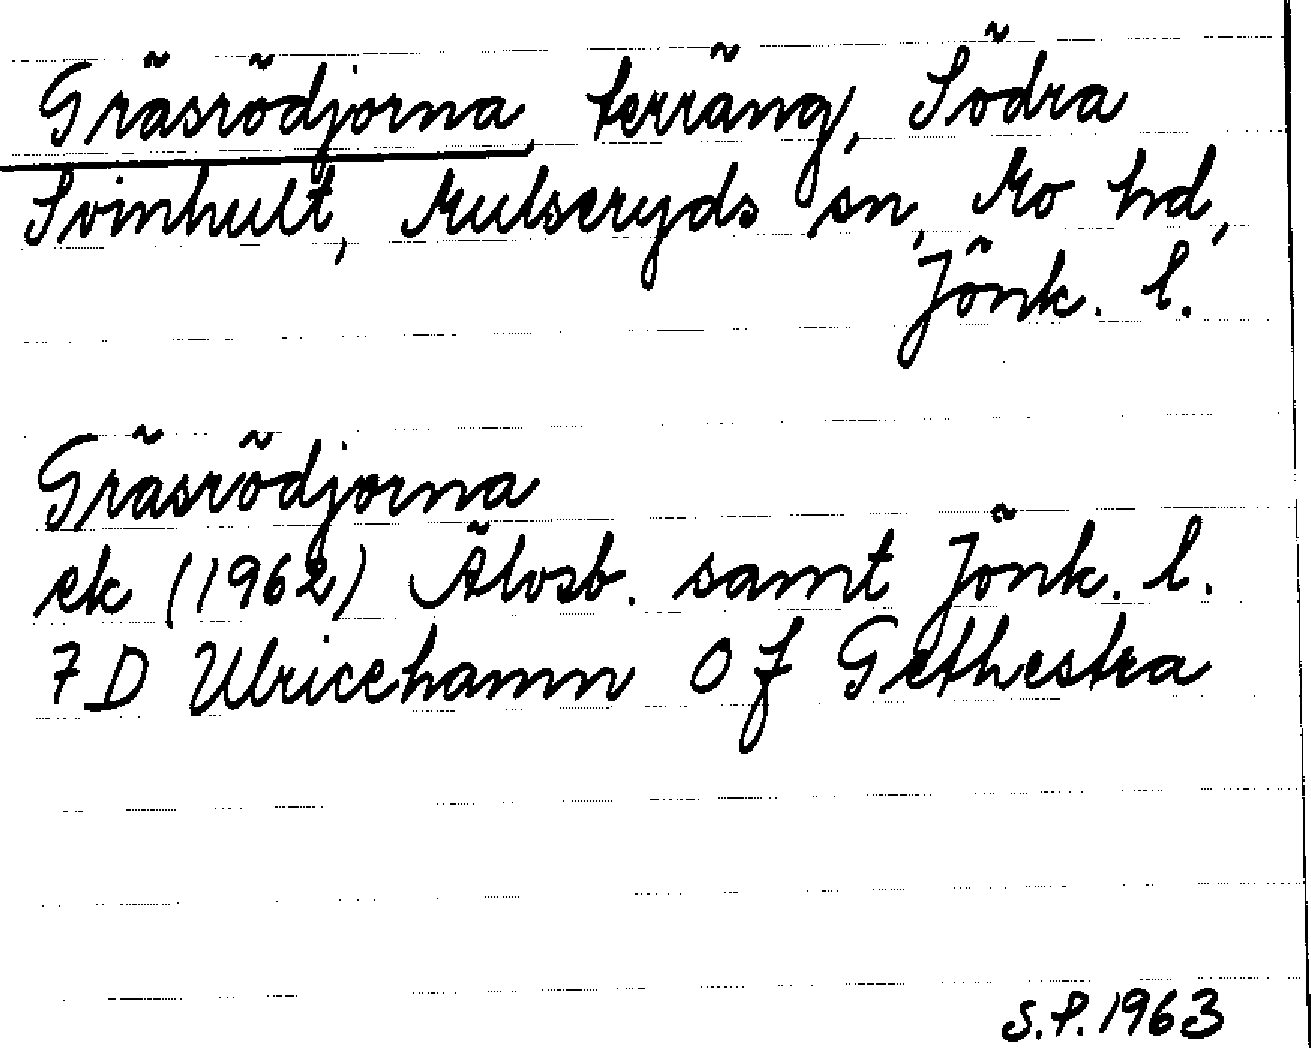 Gräsrödjorna, terräng, Södra
Svinhult, Mulseryds sn, Mo hd,
Jönk. l.
Gräsrödjorna
ek (1962) Älvsb. samt Jönk. l.
7 D Ulricehamn 0 f Gethestra
S.P. 1963